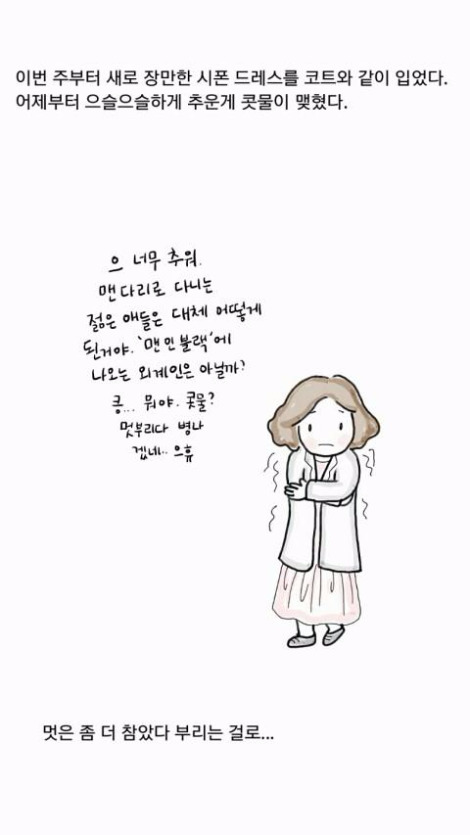 이번 주부터 새로 장만한 시폰 드레스를 코트와 같이 입었다.
어제부터 으슬으슬하게 추운게 콧물이 맺혔다.
으 너무 추워.
맨다리로 다니는
젊은 애들은 대체 어떻게
된거야. '맨인블랙'에
나오는 외계인은 아닐까?
킁... 뭐야. 콧물?
멋부리다 병나
겠네.. 으휴
멋은 좀 더 참았다 부리는 걸로...